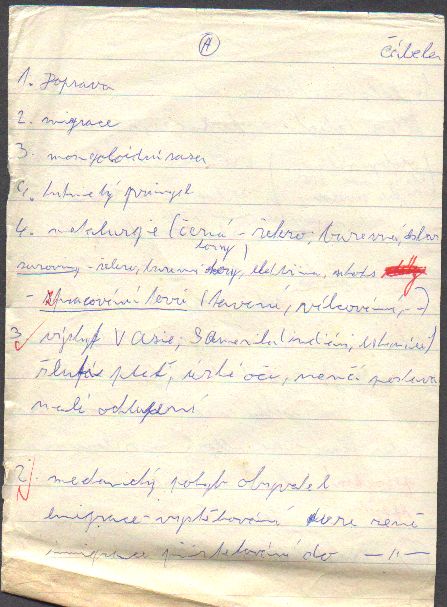 A
1. Doprava
2. migrace
3. mongoloidní rasa
4. hutnický průmysl
4. metalurgie (černá - železo, barevná,
rudy
suroviny - železo, barevné, elektřina,
- zpracování kovů (tavení, válcování, -)
3. výskyt V Asie, S Amerika (indiáni,
žlutá pleť, úzké oči, menší postava
malé ochlupení
2. mechanický pohyb obyvatel
emigrace - vystěhování ze země
imigrace přistěhování do — " —